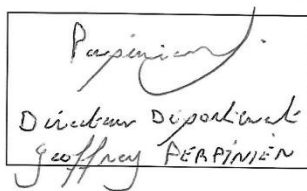 Perpinien
Directeur Départemental
Geoffrey PERPINIEN